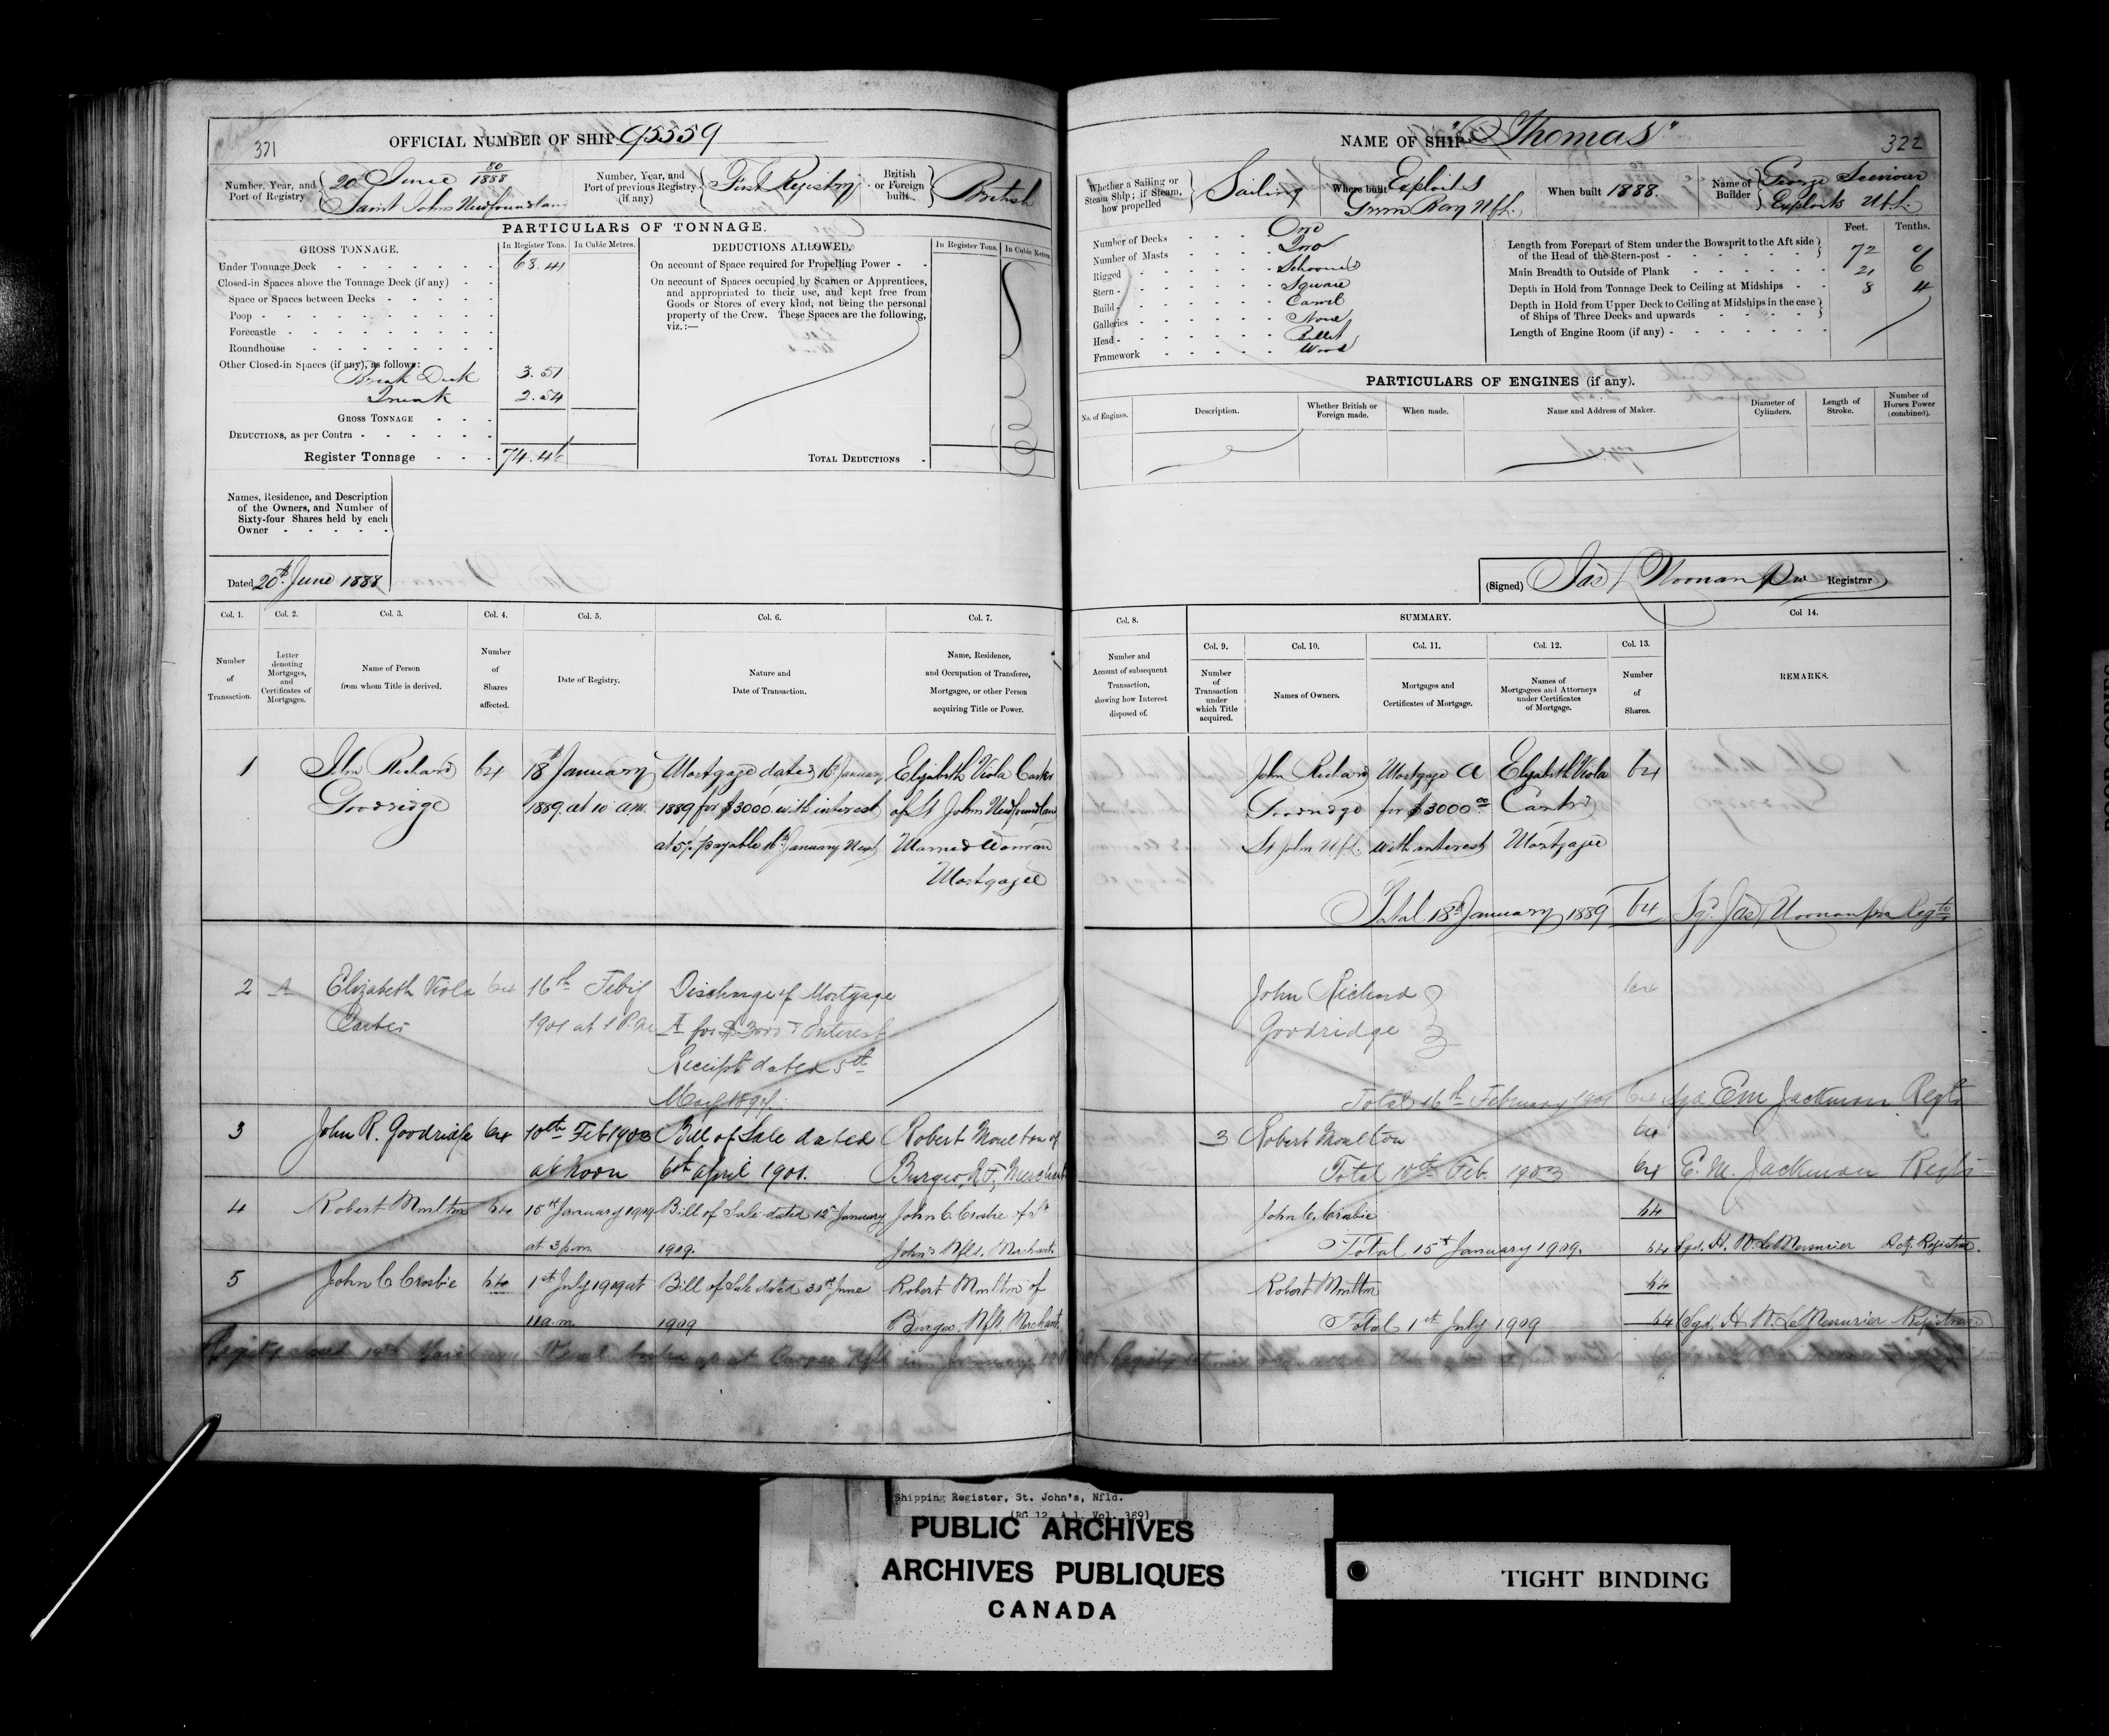 371
OFFICIAL NUMBER OF SHIP 95559
Number, Year, and Port of Registry
20th June 80/1888
Saint Johns Newfoundland
Number, Year, and Port of previous Registry (if any)
First Registry
British or Foreign built
British
PARTICULARS OF TONNAGE.
GROSS TONNAGE.
In Register Tons.
In Cubic Metres.
Under Tonnage Deck 68.41
Closed-in Spaces above the Tonnage Deck (if any)
Space or Spaces between Decks
Poop
Forecastle
Roundhouse
Other Closed-in Spaces (if any), as follows:
Break Deck 3.51
2.54
GROSS TONNAGE
DEDUCTIONS, as per Contra
Register Tonnage 74.46
DEDUCTIONS ALLOWED.
In Register Tons.
In Cubic Metres.
On account of Space required for Propelling Power
On account of Spaces occupied by Seamen or Apprentices,
and appropriated to their use, and kept free from
Goods or Stores of every kind, not being the personal
property of the Crew. These Spaces are the following,
viz.:—
TOTAL DEDUCTIONS
Names, Residence, and Description
of the Owners, and Number of
Sixty-four Shares held by each
Owner
Dated 20th June 1888
Col. 1.
Number of Transaction.
Col. 2.
Letter denoting Mortgages, and Certificates of Mortgages.
Col. 3.
Name of Person from whom Title is derived.
Col. 4.
Number of Shares affected.
Col. 5.
Date of Registry.
Col. 6.
Nature and Date of Transaction.
Col. 7.
Name, Residence, and Occupation of Transferee, Mortgagee, or other Person acquiring Title or Power.
1 John Richard 64 18th January Mortgage dated 16th January Elizabeth Viola Carter
Goodridge 1889 at 10 a.m. 1889 for $3000 with interest of St Johns Newfoundland
at 5% payable 16th January Next Married Woman
Mortgagee
2 A Elizabeth Viola 64 16th Feby Discharge of Mortgage
Carter 1901 at 1 P.M. A for $3000 & Interest
Receipt dated 5th
May
3 John R. Goodridge 64 10th Feb 1903 Bill of Sale dated Robert Moulton of
at Noon 6th April 1901. Burgeo, N.F., Merchant
4 Robert Moulton 64 15th January 1909 Bill of Sale dated 12th January John C. Crosbie of St
at 3 p.m. 1909. John's Nfld. Merchant.
5 John C Crosbie 64 1st July 1909 at Bill of Sale dated 30th June Robert Moulton of
11 a.m. 1909 Burgeo, Nfld. Merchant.
NAME OF SHIP "Thomas"
322
Whether a Sailing or Steam Ship; if Steam, how propelled
Sailing
Where built Exploits
Nfld.
When built 1888.
Name of Builder
George
Exploits Nfld.
Number of Decks One
Number of Masts Two
Rigged Schooner
Stern Square
Build Carvel
Galleries None
Head Billet
Framework Wood
Feet. Tenths.
Length from Forepart of Stem under the Bowsprit to the Aft side
of the Head of the Stern-post 72
Main Breadth to Outside of Plank 21 6
Depth in Hold from Tonnage Deck to Ceiling at Midships 8 4
Depth in Hold from Upper Deck to Ceiling at Midships in the case
of Ships of Three Decks and upwards
Length of Engine Room (if any)
PARTICULARS OF ENGINES (if any).
No. of Engines.
Description.
Whether British or Foreign made.
When made.
Name and Address of Maker.
Diameter of Cylinders.
Length of Stroke.
Number of Horses Power (combined).
(Signed) Jas Registrar
Col. 8.
Number and Account of subsequent Transaction, showing how Interest disposed of.
SUMMARY.
Col. 9.
Number of Transaction under which Title acquired.
Col. 10.
Names of Owners.
Col. 11.
Mortgages and Certificates of Mortgage.
Col. 12.
Names of Mortgagees and Attorneys under Certificates of Mortgage.
Col. 13.
Number of Shares.
Col 14.
REMARKS.
John Richard Mortgage A Elizabeth Viola 64
Goodridge for $3000.00 Carter
St John Nfld. with interest Mortgagee
Total 18th January 1889 64
John Richard 64
Goodridge
Total 16th February 1901 64 Sgd. Em Jackman Regtr
3 Robert Moulton 64
Total 10th Feb. 1903 64 E. M. Jackman Regtr
John C. Crosbie 64
Total 15th January 1909. 64 Sgd. H. W. LeMessurier Actg. Registrar.
Robert Moulton 64
Total 1st July 1909 64 Sgd. H W. LeMessurier Registrar
Shipping Register, St. John's, Nfld.
(RG 12, A 1, Vol. 389)
PUBLIC ARCHIVES
ARCHIVES PUBLIQUES
CANADA
TIGHT BINDING